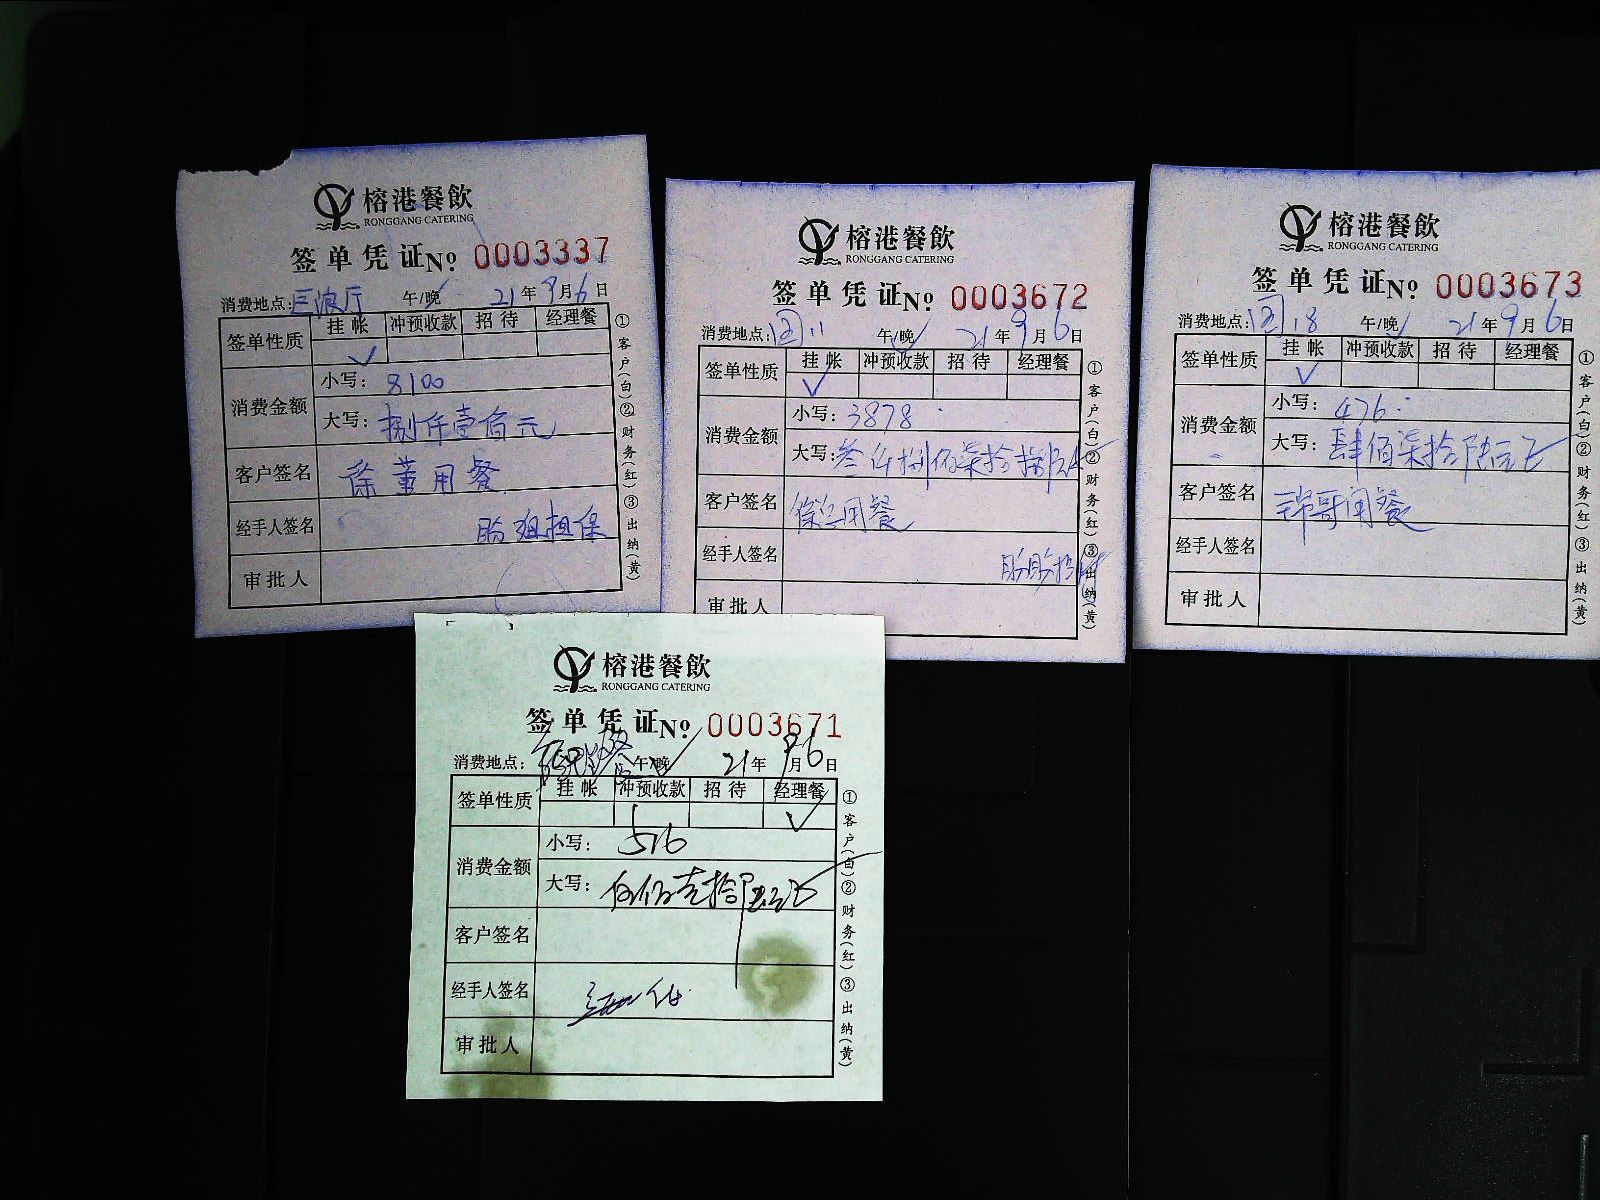 榕港餐飲
RONGGANG CATERING
签单凭证№ 0003337
消费地点: 巨浪厅 午/晚 21年9月6日
签单性质 挂帐 冲预收款 招待 经理餐
✓
消费金额 小写: 8100
大写: 捌仟壹佰元
客户签名 徐董用餐
经手人签名 盼姐担保
审批人
①客户(白)②财务(红)③出纳(黄)
榕港餐飲
RONGGANG CATERING
签单凭证№ 0003672
消费地点: 团11 午/晚 21年9月6日
签单性质 挂帐 冲预收款 招待 经理餐
✓
消费金额 小写: 3878
大写: 叁仟捌佰柒拾捌元
客户签名 用餐
经手人签名 盼盼担保
审批人
①客户(白)②财务(红)③出纳(黄)
榕港餐飲
RONGGANG CATERING
签单凭证№ 0003673
消费地点: 团18 午/晚 21年9月6日
签单性质 挂帐 冲预收款 招待 经理餐
✓
消费金额 小写: 476
大写: 肆佰柒拾陆元正
客户签名 哥用餐
经手人签名
审批人
①客户(白)②财务(红)③出纳(黄)
榕港餐飲
RONGGANG CATERING
签单凭证№ 0003671
消费地点: 经理餐 午/晚 21年9月6日
签单性质 挂帐 冲预收款 招待 经理餐
✓
消费金额 小写: 516
大写: 伍佰壹拾陆元正
客户签名
经手人签名
审批人
①客户(白)②财务(红)③出纳(黄)